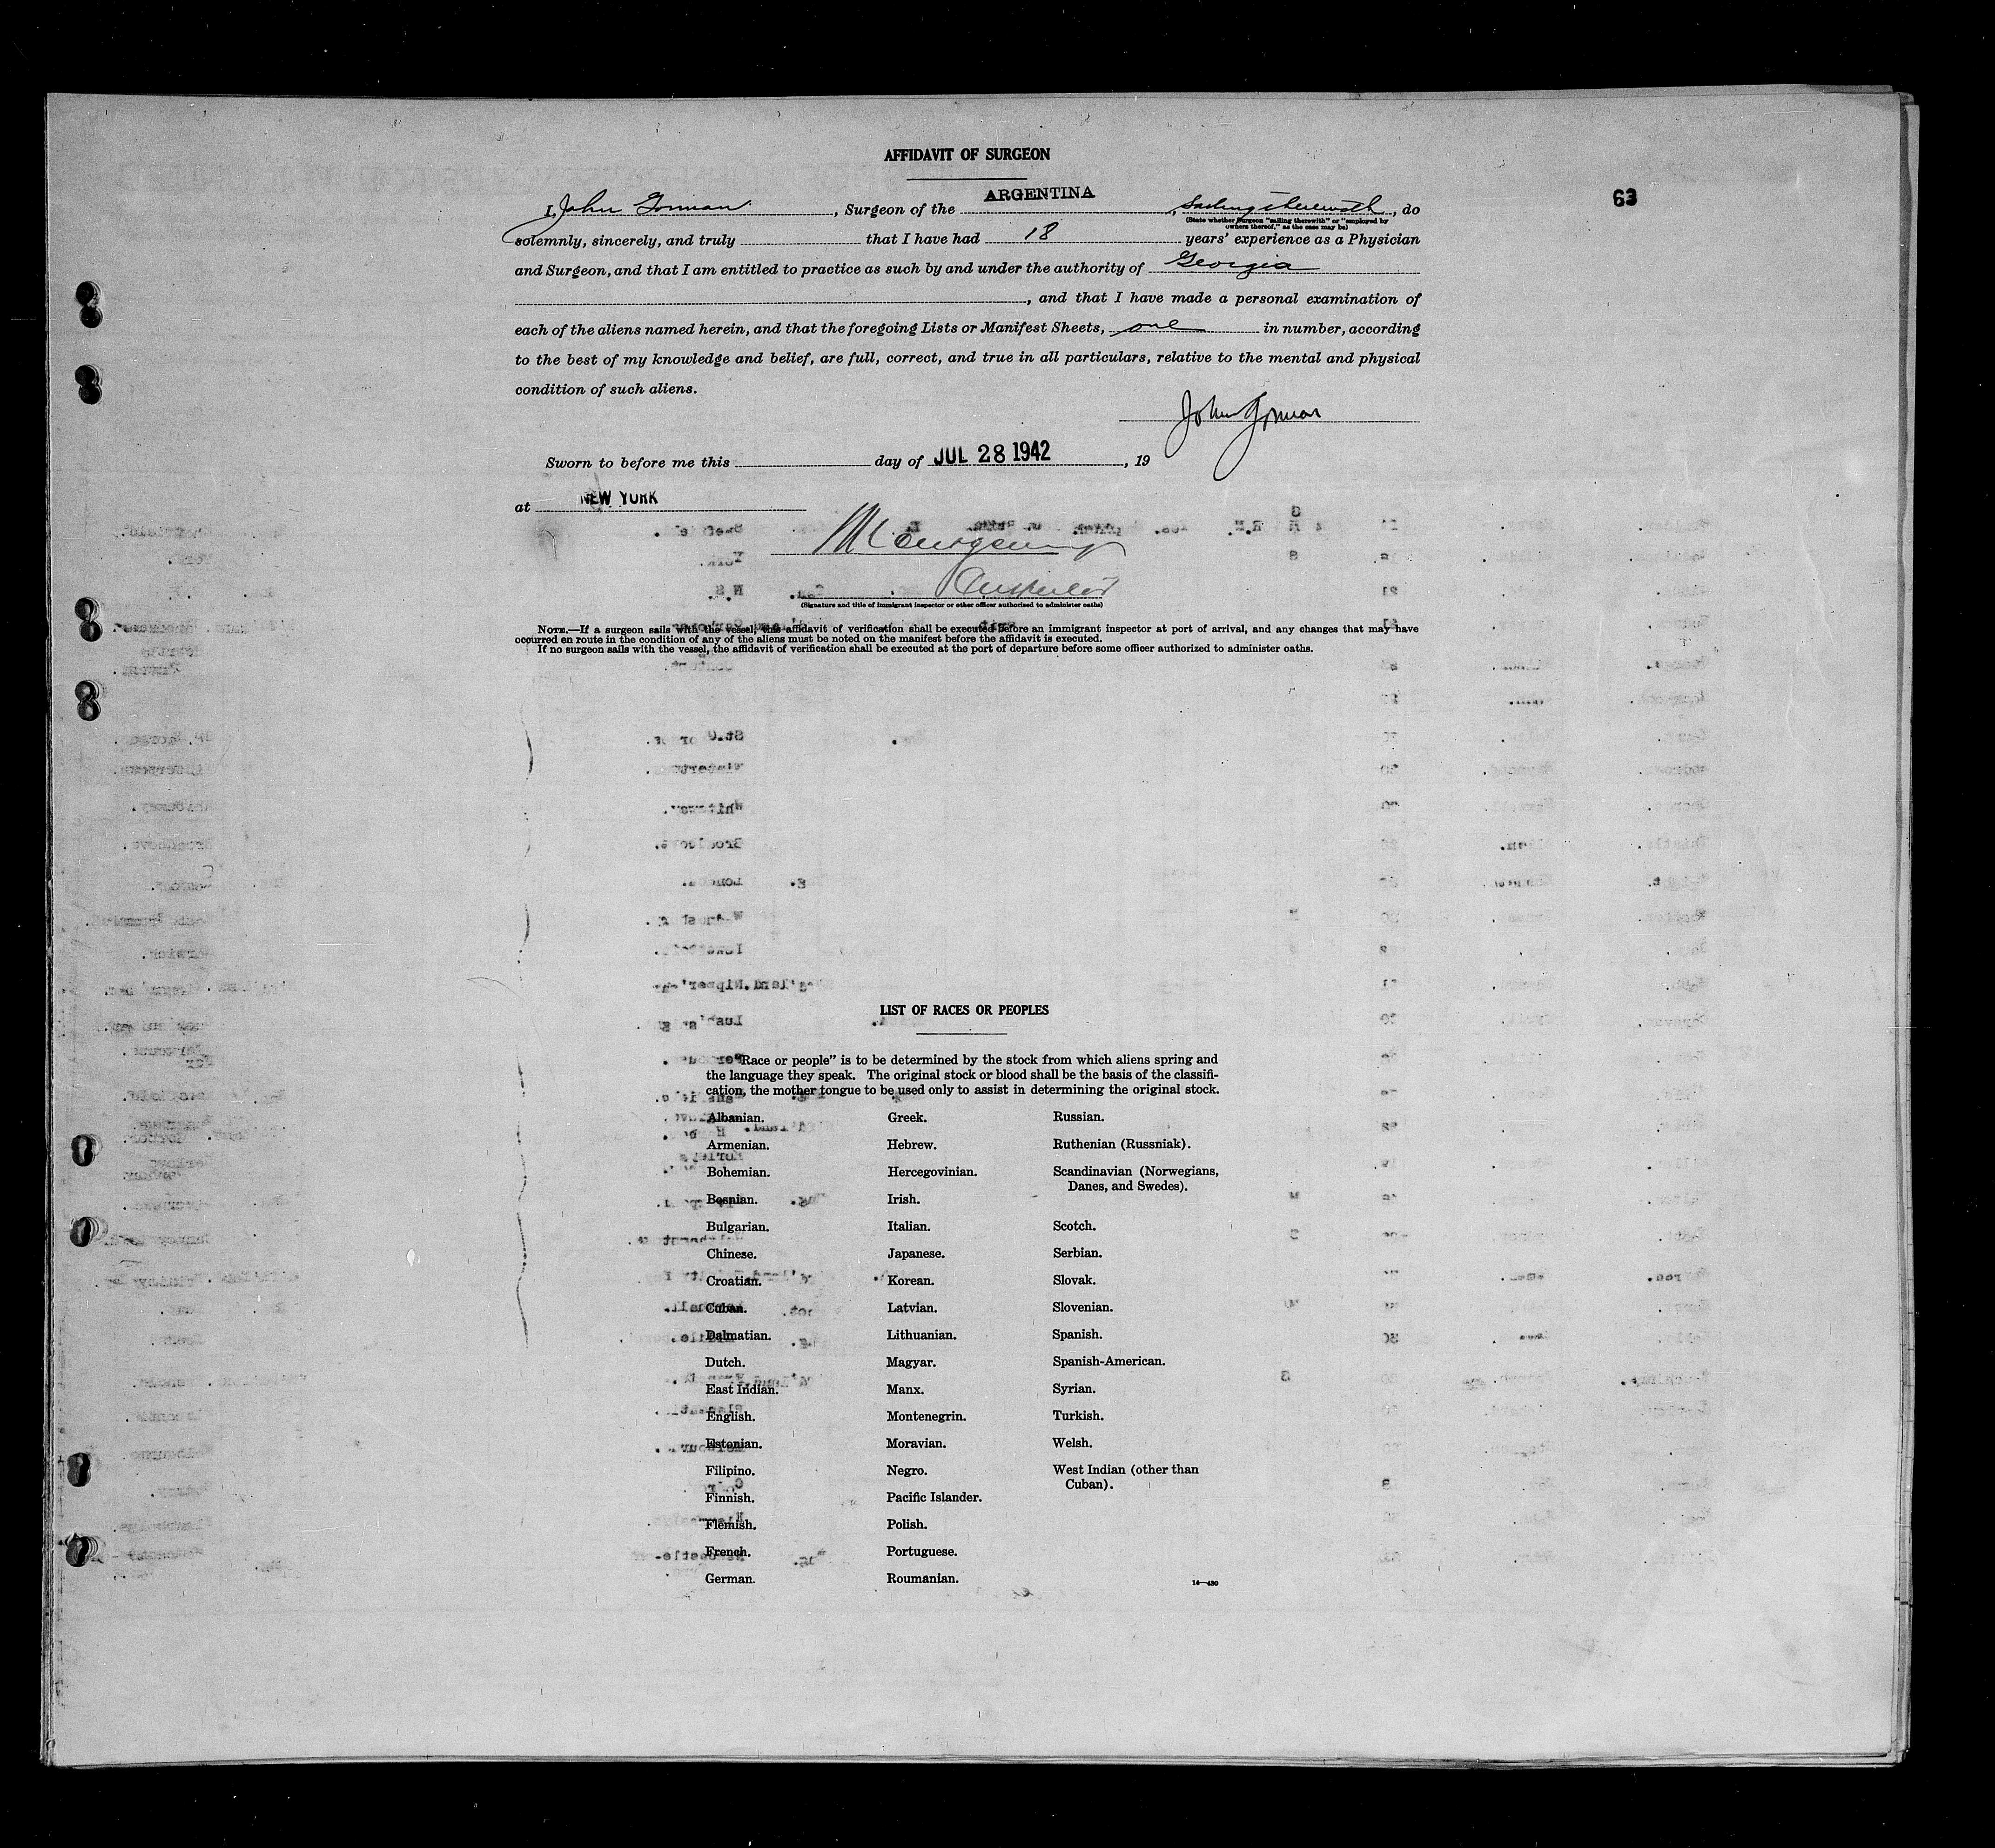 AFFIDAVIT OF SURGEON
63
ARGENTINA
I, John Gorman, Surgeon of the, Sailing therewith, do
(State whether Surgeon "sailing therewith" or "employed by
owners thereof," as the case may be)
solemnly, sincerely, and truly that I have had 18 years' experience as a Physician
and Surgeon, and that I am entitled to practice as such by and under the authority of Georgia
, and that I have made a personal examination of
each of the aliens named herein, and that the foregoing Lists or Manifest Sheets, one in number, according
to the best of my knowledge and belief, are full, correct, and true in all particulars, relative to the mental and physical
condition of such aliens.
John Gorman
Sworn to before me this day of JUL 28 1942, 19
at NEW YORK
(Signature and title of immigrant inspector or other officer authorized to administer oaths)
NOTE.—If a surgeon sails with the vessel, this affidavit of verification shall be executed before an immigrant inspector at port of arrival, and any changes that may have
occurred en route in the condition of any of the aliens must be noted on the manifest before the affidavit is executed.
If no surgeon sails with the vessel, the affidavit of verification shall be executed at the port of departure before some officer authorized to administer oaths.
LIST OF RACES OR PEOPLES
"Race or people" is to be determined by the stock from which aliens spring and
the language they speak. The original stock or blood shall be the basis of the classifi-
cation, the mother tongue to be used only to assist in determining the original stock.
Albanian.
Armenian.
Bohemian.
Bosnian.
Bulgarian.
Chinese.
Croatian.
Cuban.
Dalmatian.
Dutch.
East Indian.
English.
Estonian.
Filipino.
Finnish.
Flemish.
French.
German.
Greek.
Hebrew.
Hercegovinian.
Irish.
Italian.
Japanese.
Korean.
Latvian.
Lithuanian.
Magyar.
Manx.
Montenegrin.
Moravian.
Negro.
Pacific Islander.
Polish.
Portuguese.
Roumanian.
Russian.
Ruthenian (Russniak).
Scandinavian (Norwegians,
Danes, and Swedes).
Scotch.
Serbian.
Slovak.
Slovenian.
Spanish.
Spanish-American.
Syrian.
Turkish.
Welsh.
West Indian (other than
Cuban).
14—430